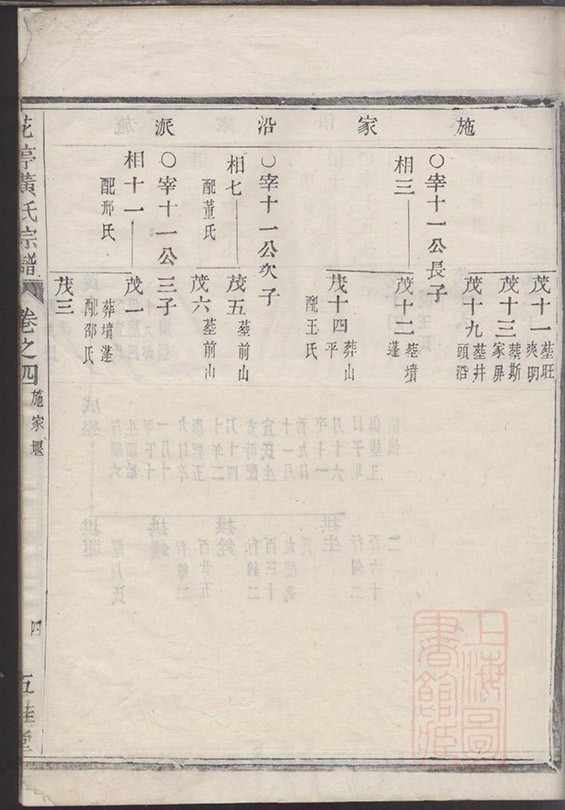 施家沿派
茂十一 塟旺爽明
茂十三 葬斯家屏
茂十九 塟井頭沿
〇宰十一公長子
相三
茂十二 塟墳蓬
茂十四 葬山平
配王氏
〇宰十一公次子
相七
配董氏
茂五 塟前山
茂六 塟前山
〇宰十一公三子
相十一
配邢氏
茂一 葬墳蓬
配邵氏
茂三
花亭黃氏宗譜
卷之四
施家堰
四
五桂堂
上海圖書館藏